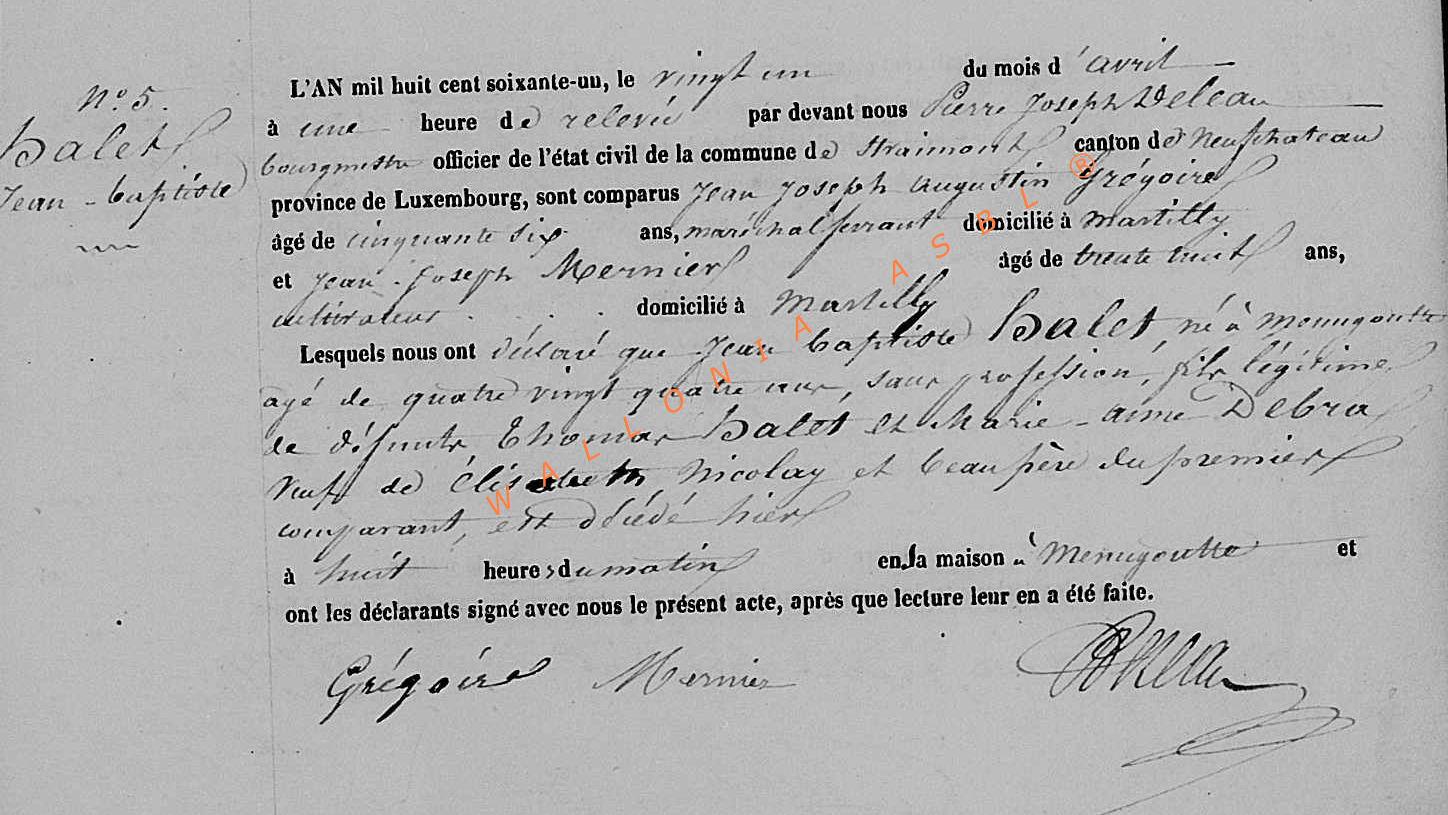 N° 5.
Halet
Jean-baptiste
L'AN mil huit cent soixante-un, le vingt un du mois d'avril
à une heure de relevée par devant nous Pierre Joseph Deleau
bourgmestre officier de l'état civil de la commune de Straimont canton de Neufchateau
province de Luxembourg, sont comparus Jean Joseph Augustin Grégoire
âgé de cinquante six ans, maréchal ferrant domicilié à Martilly
et Jean-Joseph Mernier âgé de trente huit ans,
cultivateur domicilié à Martilly
Lesquels nous ont déclaré que Jean baptiste Halet, né à Menugoutte
agé de quatre vingt quatre ans, sans profession, fils légitime
de défunts, Thomas Halet et Marie-anne Debra
veuf de Élisabeth Nicolay et beau père du premier
comparant, est décédé hier
à huit heures du matin en sa maison à Menugoutte et
ont les déclarants signé avec nous le présent acte, après que lecture leur en a été faite.
Grégoire Mernier Deleau
WALLONIA ASBL ®